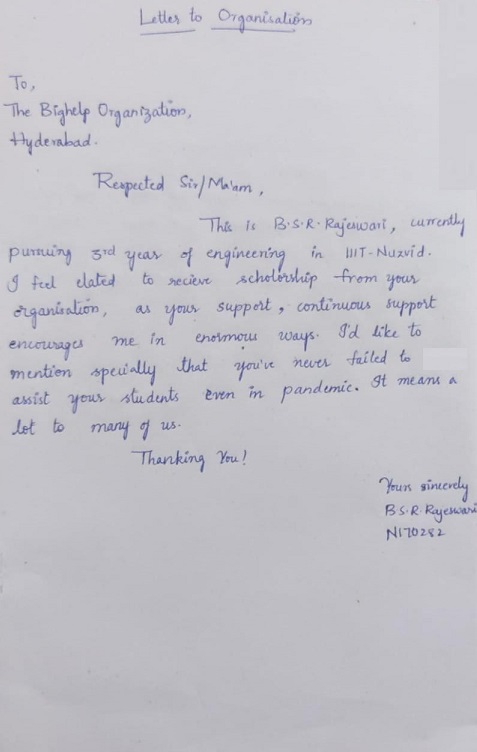 Letter to Organisation
To,
The Bighelp Organization,
Hyderabad.
Respected Sir/Ma'am,
This is B.S.R. Rajeswari, currently
pursuing 3rd year of engineering in IIIT-Nuzvid.
I feel elated to recieve scholorship from your
organisation, as your support, continuous support
encourages me in enormous ways. I'd like to
mention specially that you've never failed to
assist your students even in pandemic. It means a
lot to many of us.
Thanking You!
Yours sincerely
B.S.R. Rajeswari
N170282